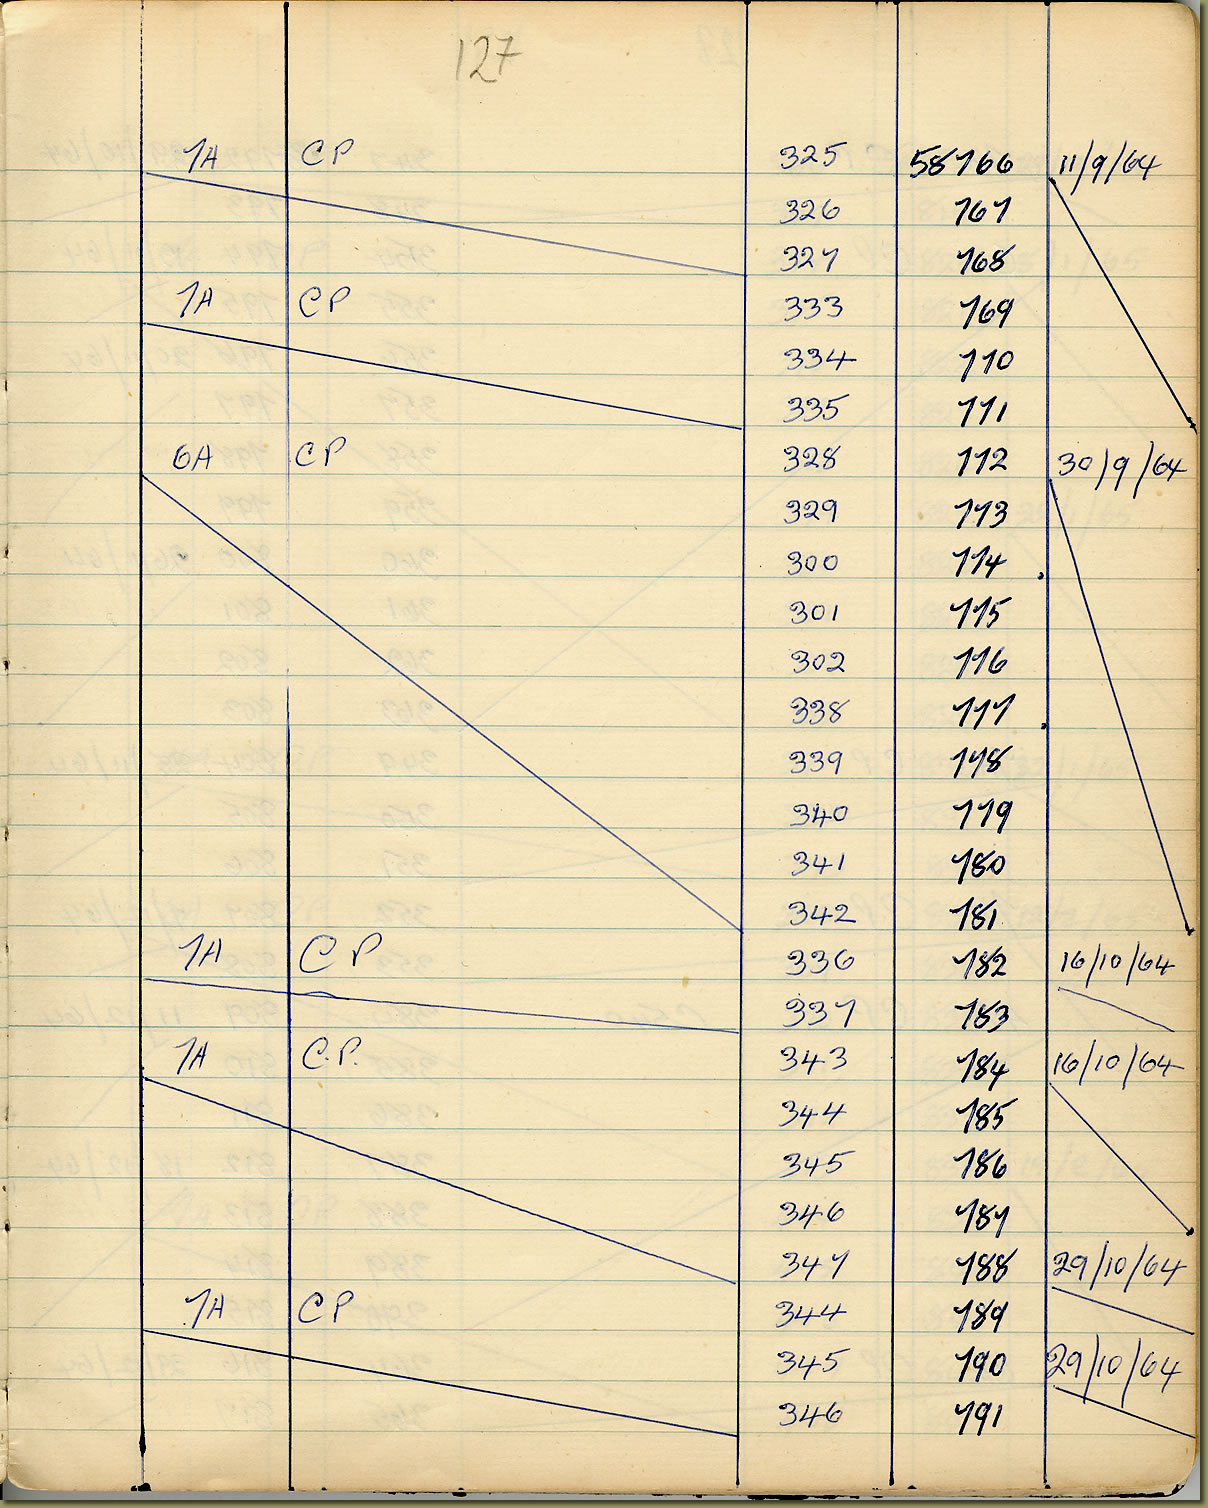 127
7A CP 325 58766 11/9/64
326 767
327 768
7A CP 333 769
334 770
335 771
6A CP 328 772 30/9/64
329 773
300 774
301 775
302 776
338 777
339 778
340 779
341 780
342 781
7A CP 336 782 16/10/64
337 783
7A C.P. 343 784 16/10/64
344 785
345 786
346 787
347 788 29/10/64
7A CP 344 789
345 790 29/10/64
346 791